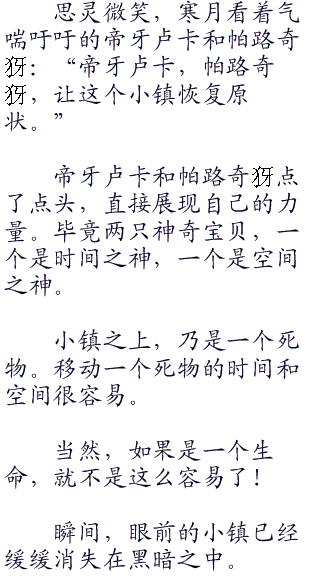 思灵微笑，寒月看着气
喘吁吁的帝牙卢卡和帕路奇
犽：“帝牙卢卡，帕路奇
犽，让这个小镇恢复原
状。”
帝牙卢卡和帕路奇犽点
了点头，直接展现自己的力
量。毕竟两只神奇宝贝，一
个是时间之神，一个是空间
之神。
小镇之上，乃是一个死
物。移动一个死物的时间和
空间很容易。
当然，如果是一个生
命，就不是这么容易了！
瞬间，眼前的小镇已经
缓缓消失在黑暗之中。